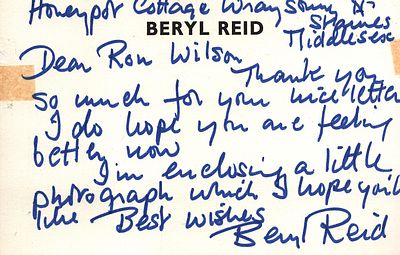 Honeypot Cottage Wraysbury Nr
Staines
BERYL REID
Middlesex
Dear Ron Wilson
Thank you
so much for your nice letter
I do hope you are feeling
better now
I'm enclosing a little
photograph which I hope you'll
like Best wishes
Beryl Reid